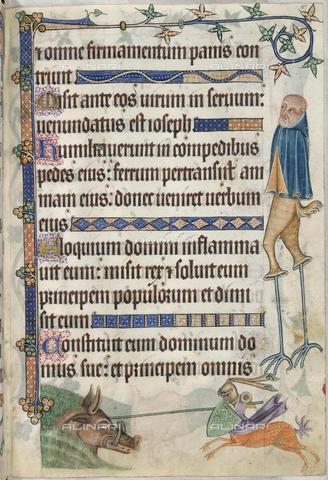 ⁊ omne firmamentum panis con
triuit.
Misit ante eos uirum in seruum:
uenundatus est ioseph.
Humiliauerunt in compedibus
pedes eius: ferrum pertransiit ani
mam eius: donec ueniret uerbum
eius.
Eloquium domini inflamma
uit eum: misit rex ⁊ soluit eum
princeps populorum et dimi
sit eum.
Constituit eum dominum do
mus sue: et principem omnis
ALINARI
ALINARI